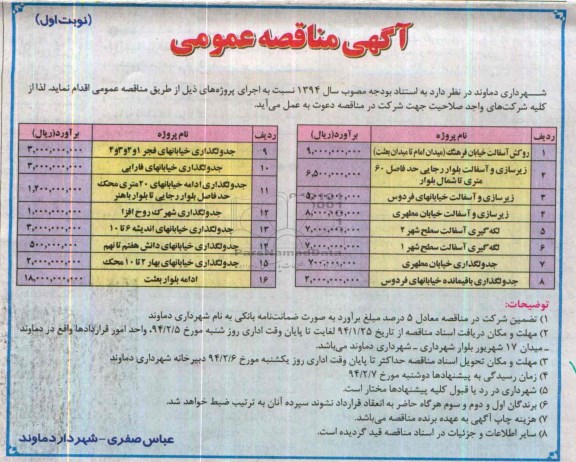 (نوبت اول)
آگهی مناقصه عمومی
شهرداری دماوند در نظر دارد به استناد بودجه مصوب سال ۱۳۹۴ نسبت به اجرای پروژه‌های ذیل از طریق مناقصه عمومی اقدام نماید. لذا از
کلیه شرکت‌های واجد صلاحیت جهت شرکت در مناقصه دعوت به عمل می‌آید.
ردیف نام پروژه برآورد(ریال)
۱ روکش آسفالت خیابان فرهنگ (میدان امام تا میدان بعثت) ۹,۰۰۰,۰۰۰,۰۰۰
۲ زیرسازی و آسفالت بلوار رجایی حد فاصل ۶۰ متری تا شمال بلوار ۶,۵۰۰,۰۰۰,۰۰۰
۳ زیرسازی و آسفالت خیابانهای فردوس ۵,۰۰۰,۰۰۰,۰۰۰
۴ زیرسازی و آسفالت خیابان مطهری ۸,۰۰۰,۰۰۰,۰۰۰
۵ لکه گیری آسفالت سطح شهر ۲ ۷,۰۰۰,۰۰۰,۰۰۰
۶ لکه گیری آسفالت سطح شهر ۱ ۷,۰۰۰,۰۰۰,۰۰۰
۷ جدولگذاری خیابان مطهری ۷۰۰,۰۰۰,۰۰۰
۸ جدولگذاری باقیمانده خیابانهای فردوس ۲,۰۰۰,۰۰۰,۰۰۰
ردیف نام پروژه برآورد(ریال)
۹ جدولگذاری خیابانهای فجر ۱و۲و۳و۴ ۳,۰۰۰,۰۰۰,۰۰۰
۱۰ جدولگذاری خیابانهای فارابی ۳,۰۰۰,۰۰۰,۰۰۰
۱۱ جدولگذاری ادامه خیابانهای ۲۰متری محک حد فاصل بلوار رجایی تا بلوار باهنر ۱,۲۰۰,۰۰۰,۰۰۰
۱۲ جدولگذاری شهرک روح افزا ۱,۰۰۰,۰۰۰,۰۰۰
۱۳ جدولگذاری خیابانهای اندیشه ۶ تا ۱۰ ۳,۰۰۰,۰۰۰,۰۰۰
۱۴ جدولگذاری خیابانهای دانش هفتم تا نهم ۵۰۰,۰۰۰,۰۰۰
۱۵ جدولگذاری خیابانهای بهار ۲ تا ۱۰ محک ۲,۰۰۰,۰۰۰,۰۰۰
۱۶ ادامه بلوار بعثت ۱۸,۰۰۰,۰۰۰,۰۰۰
توضیحات:
۱) تضمین شرکت در مناقصه معادل ۵ درصد مبلغ برآورد به صورت ضمانت‌نامه بانکی به نام شهرداری دماوند
۲) مهلت و مکان دریافت اسناد مناقصه از تاریخ ۹۴/۱/۲۵ لغایت تا پایان وقت اداری روز شنبه مورخ ۹۴/۲/۵، واحد امور قراردادها واقع در دماوند
ـ میدان ۱۷ شهریور بلوار شهرداری ـ شهرداری دماوند می‌باشد.
۳) مهلت و مکان تحویل اسناد مناقصه حداکثر تا پایان وقت اداری روز یکشنبه مورخ ۹۴/۲/۶ دبیرخانه شهرداری دماوند
۴) زمان رسیدگی به پیشنهادها دوشنبه مورخ ۹۴/۲/۷
۵) شهرداری در رد یا قبول کلیه پیشنهادها مختار است.
۶) برندگان اول و دوم و سوم هرگاه حاضر به انعقاد قرارداد نشوند سپرده آنان به ترتیب ضبط خواهد شد.
۷) هزینه چاپ آگهی به عهده برنده مناقصه می‌باشد.
۸) سایر اطلاعات و جزئیات در اسناد مناقصه قید گردیده است.
عباس صفری - شهردار دماوند